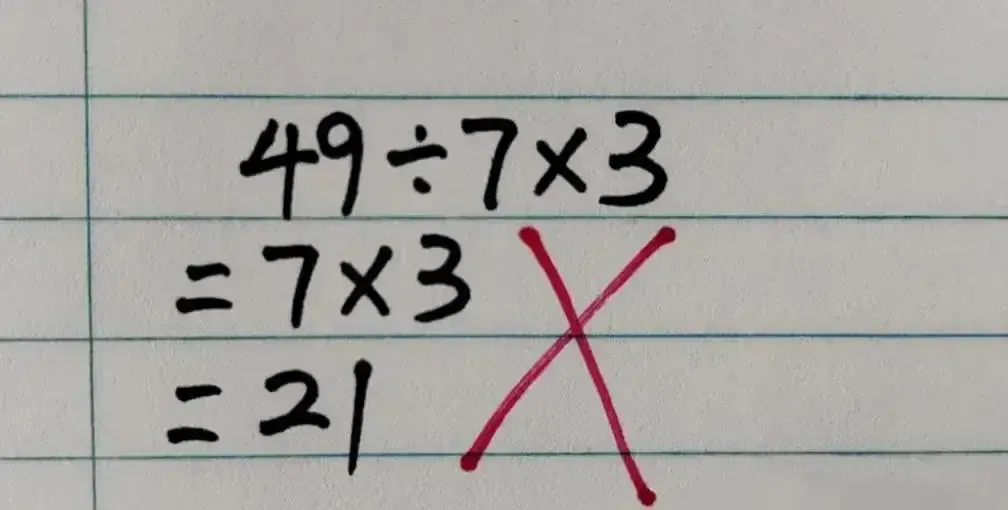 49÷7×3
=7×3
=21